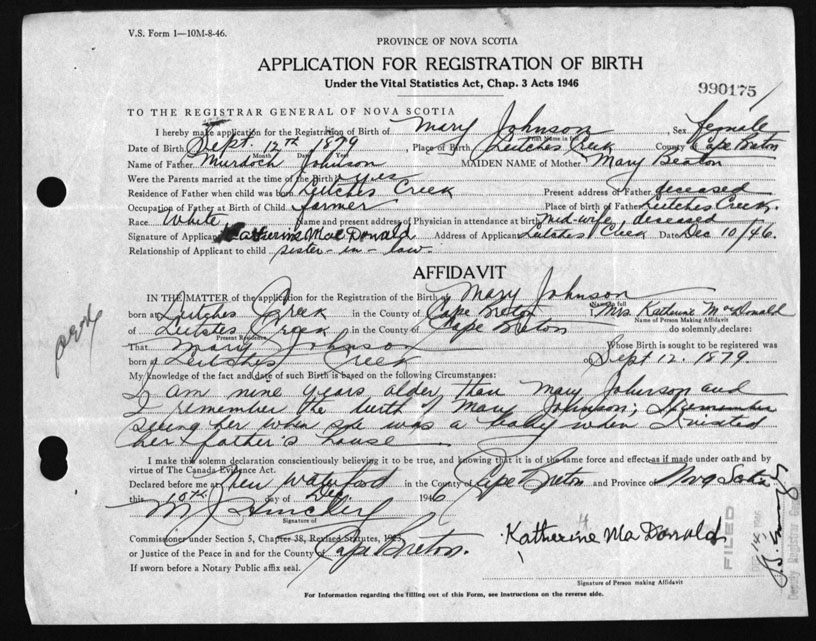 V.S. Form 1—10M-8-46.
PROVINCE OF NOVA SCOTIA
APPLICATION FOR REGISTRATION OF BIRTH
Under the Vital Statistics Act, Chap. 3 Acts 1946
990175
TO THE REGISTRAR GENERAL OF NOVA SCOTIA
I hereby make application for the Registration of Birth of Mary Johnson, Sex female
Print Name in full
Date of Birth Sept. 12th 1879, Place of Birth Leitches Creek County Cape Breton
Month Day Year
Name of Father Murdoch Johnson MAIDEN NAME of Mother Mary Beaton
Were the Parents married at the time of the Birth yes
Residence of Father when child was born Leitches Creek Present address of Father deceased
Occupation of Father at Birth of Child farmer Place of birth of Father Leitches Creek.
Race White Name and present address of Physician in attendance at birth mid-wife, deceased
Signature of Applicant Katherine MacDonald Address of Applicant Leitches Creek Date Dec 10/46.
Relationship of Applicant to child sister-in-law
AFFIDAVIT
IN THE MATTER of the application for the Registration of the Birth of Mary Johnson
Name in full
born at Leitches Creek in the County of Cape Breton I, Mrs Katherine McDonald
Name of Person Making Affidavit
of Leitches Creek in the County of Cape Breton do solemnly declare:
Present Residence
That Mary Johnson Whose Birth is sought to be registered was
born at Leitches Creek on Sept 12. 1879.
My knowledge of the fact and date of such Birth is based on the following Circumstances:
I am nine years older than Mary Johnson and
I remember the birth of Mary Johnson; I remember
seeing her when she was a baby when I visited
her father's house
I make this solemn declaration conscientiously believing it to be true, and knowing that it is of the same force and effect as if made under oath and by
virtue of The Canada Evidence Act.
Declared before me at New Waterford in the County of Cape Breton and Province of Nova Scotia
this 10th day of Dec. 1946
M J
Signature of
Commissioner under Section 5, Chapter 38, Revised Statutes, 1923
or Justice of the Peace in and for the County of Cape Breton.
If sworn before a Notary Public affix seal.
Katherine MacDonald
Signature of Person making Affidavit
For Information regarding the filling out of this Form, see instructions on the reverse side.
FILED
Deputy Registrar